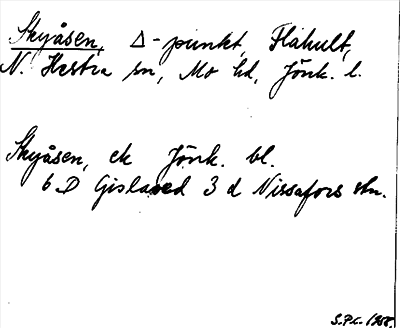 Skyåsen, Δ-punkt, Flahult,
N. Hestra sn, Mo hd, Jönk. l.
Skyåsen, ek Jönk. bl.
6 D Gislaved 3 d Nissafors stn.
S.P.C. 1958.